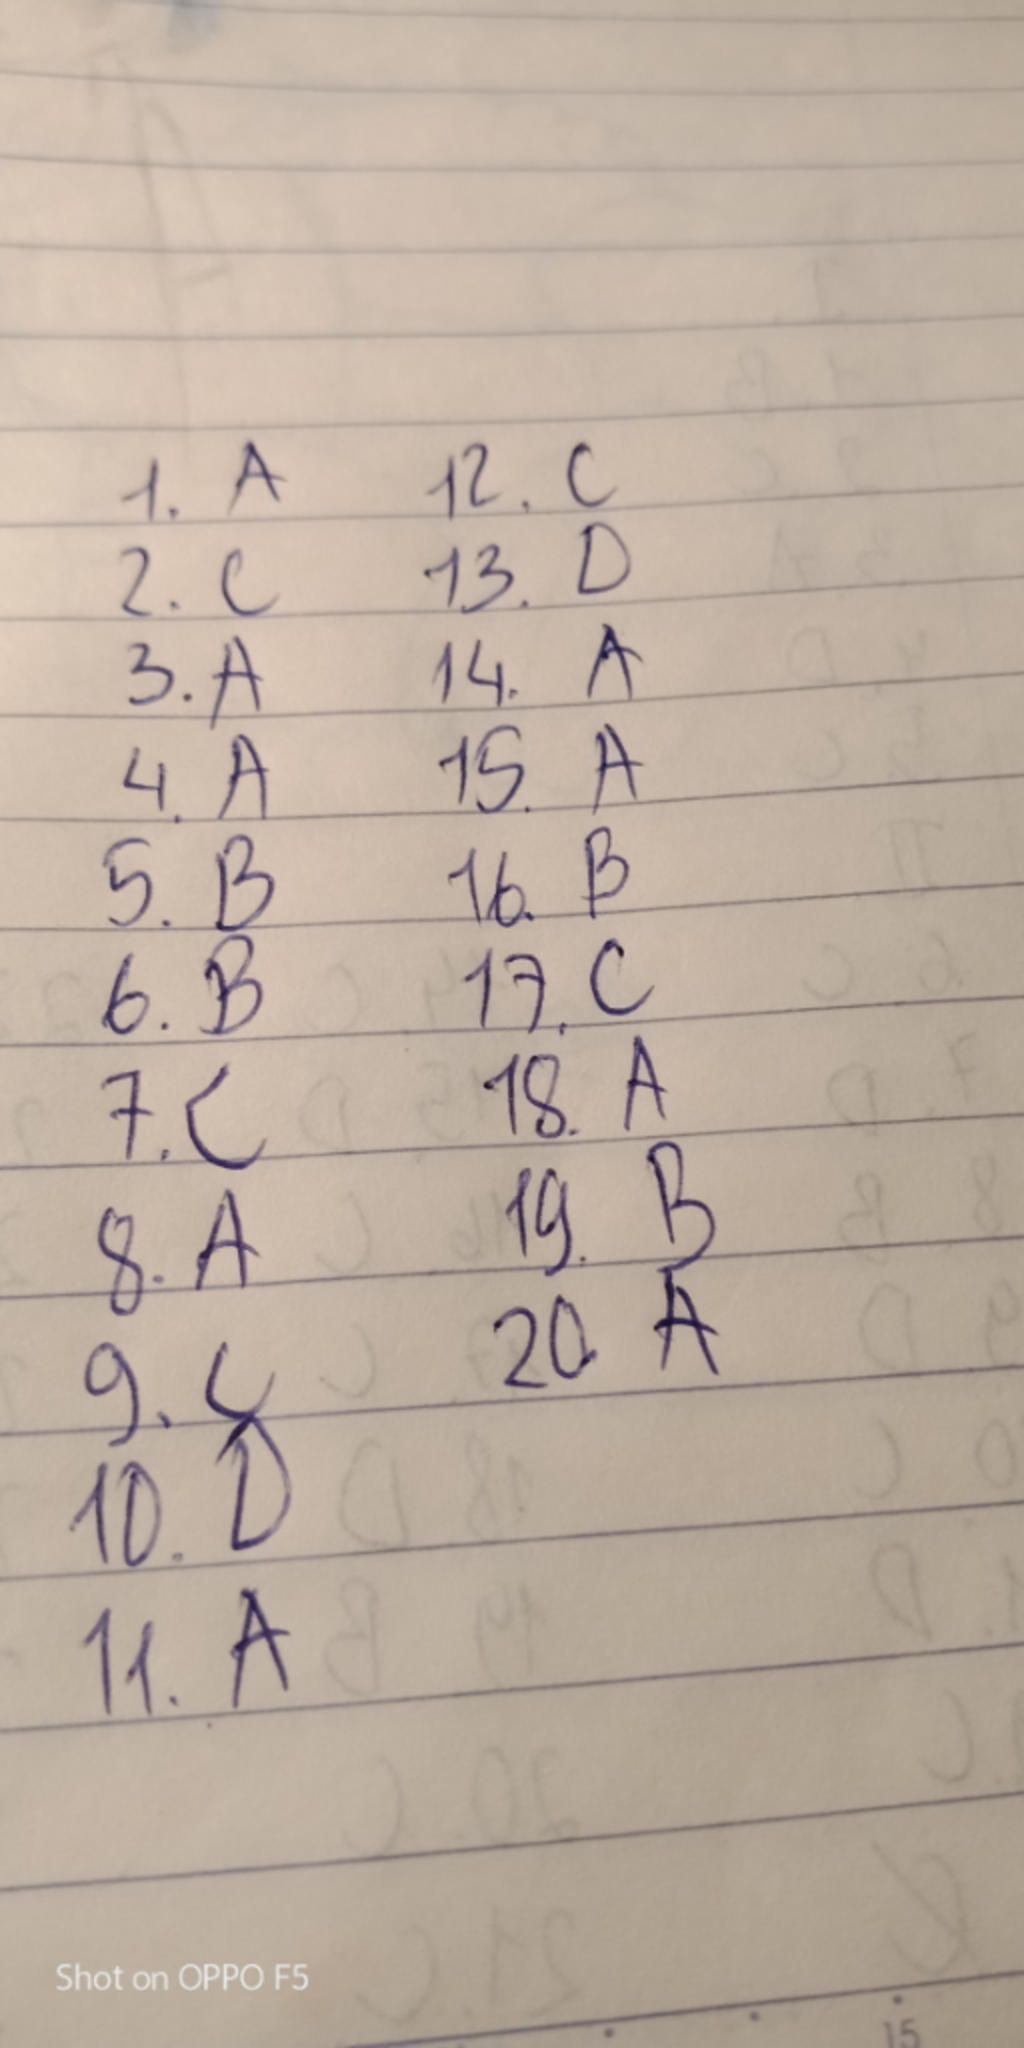 1. A
2. C
3. A
4. A
5. B
6. B
7. C
8. A
9. C
10. D
11. A
12. C
13. D
14. A
15. A
16. B
17. C
18. A
19. B
20 A
Shot on OPPO F5
15